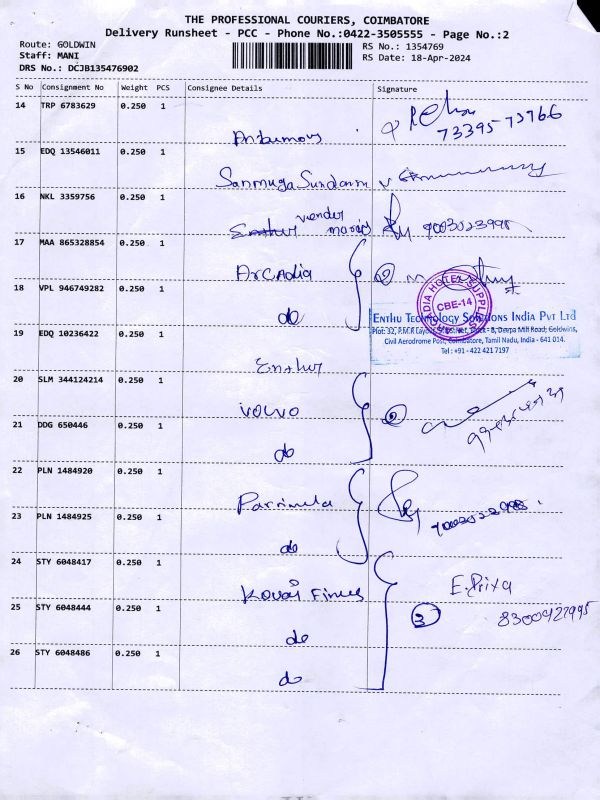 THE PROFESSIONAL COURIERS, COIMBATORE
Delivery Runsheet - PCC - Phone No.:0422-3505555 - Page No.:2
Route: GOLDWIN
RS No.: 1354769
Staff: MANI
RS Date: 18-Apr-2024
DRS No.: DCJB135476902
S No Consignment No Weight PCS Consignee Details Signature
14 TRP 6783629 0.250 1
73395 73966
15 EDQ 13546011 0.250 1
Sanmuga Sundaram
16 NKL 3359756 0.250 1
17 MAA 865328854 0.250 1
Arcadia 2
18 VPL 946749282 0.250 1
do
CBE-14
ENTHU TECHNOLOGY SOLUTIONS INDIA PVT LTD
Civil Aerodrome Post, Coimbatore, Tamil Nadu, India - 641 014.
Tel : +91 - 422 421 7197
19 EDQ 10236422 0.250 1
Enthu
20 SLM 344124214 0.250 1
VOLVO
21 DDG 650446 0.250 1
do
22 PLN 1484920 0.250 1
Parrimala
23 PLN 1484925 0.250 1
do
24 STY 6048417 0.250 1
Kovai Fines E. Priya
25 STY 6048444 0.250 1
3 8300427995
do
26 STY 6048486 0.250 1
do